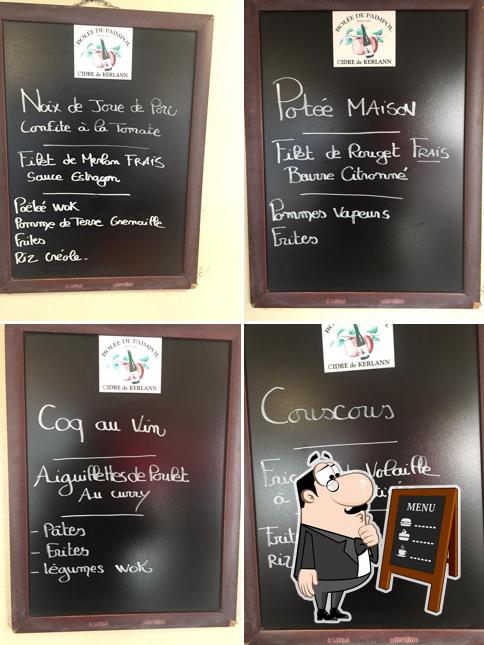 BOLÉE DE PAIMPOL
CIDRE de KERLANN
Noix de Joue de Porc
Confite à la Tomate
Filet de Merlan FRAIS
Sauce Estragon
Poêlée wok
Pomme de Terre Grenaille
Frites
Riz Créole.
BOLÉE DE PAIMPOL
CIDRE de KERLANN
Potée MAISON
Filet de Rouget FRAIS
Beurre Citronné
Pommes Vapeurs
Frites
BOLÉE DE PAIMPOL
CIDRE de KERLANN
Coq au Vin
Aiguillettes de Poulet
Au curry
- Pâtes
- Frites
- légumes wok
CIDRE de KERLANN
Couscous
Volaille
à
Riz
MENU